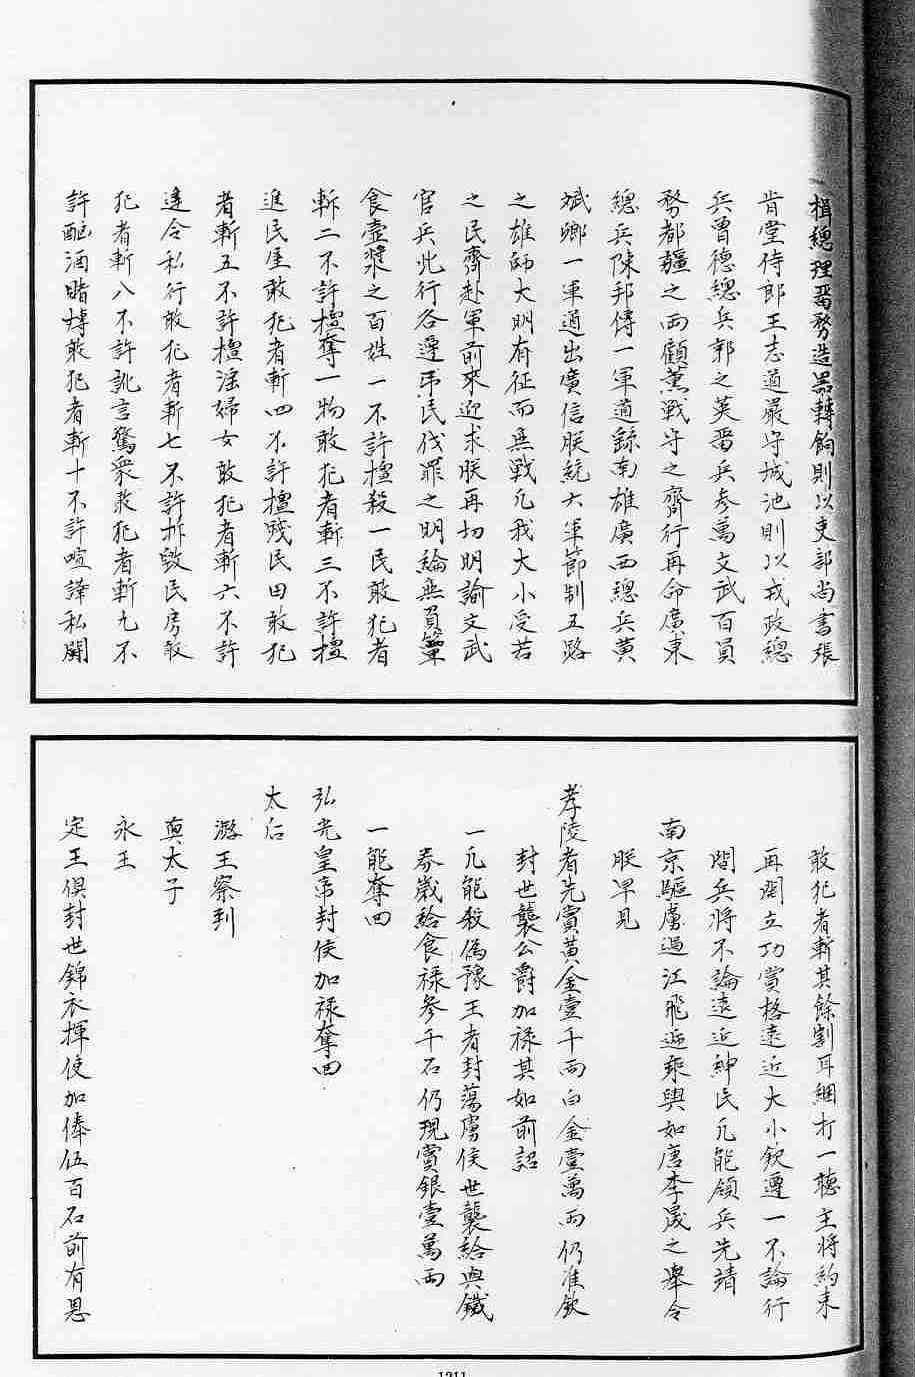 楫總理畱務造器轉餉則以吏部尚書張
肯堂侍郎王志道嚴守城池則以戎政總
兵曾德總兵郭之英畱兵參萬文武百員
務都疆之兩顧薰戰守之齊行再命廣東
總兵陳邦傳一軍道繇南雄廣西總兵黃
斌卿一軍通出廣信朕統大軍節制五路
之雄師大明有征而無戰凡我大小受若
之民齊赴軍前來迎求朕再切明諭文武
官兵此行各遵弔民伐罪之明論無負簞
食壺漿之百姓一不許擅殺一民敢犯者
斬二不許擅奪一物敢犯者斬三不許擅
進民屋敢犯者斬四不許擅殘民田敢犯
者斬五不許擅淫婦女敢犯者斬六不許
違令私行敢犯者斬七不許拆毀民房敢
犯者斬八不許訛言驚衆敢犯者斬九不
許酗酒賭博敢犯者斬十不許喧譁私鬬
敢犯者斬其餘割耳綑打一聽主將約束
再開立功賞格遠近大小欽遵一不論行
間兵將不論遠近紳民凡能領兵先靖
南京驅虜過江飛迎乘輿如唐李晟之舉令
朕早見
孝陵者先賞黃金壹千兩白金壹萬兩仍准欽
封世襲公爵加祿其如前詔
一凡能殺偽豫王者封蕩虜侯世襲給與鐵
券歲給食祿參千石仍現賞銀壹萬兩
一能奪回
弘光皇帝封侯加祿奪回
太后
潞王察到
真太子
永王
定王俱封世錦衣揮使加俸伍百石前有恩
1211